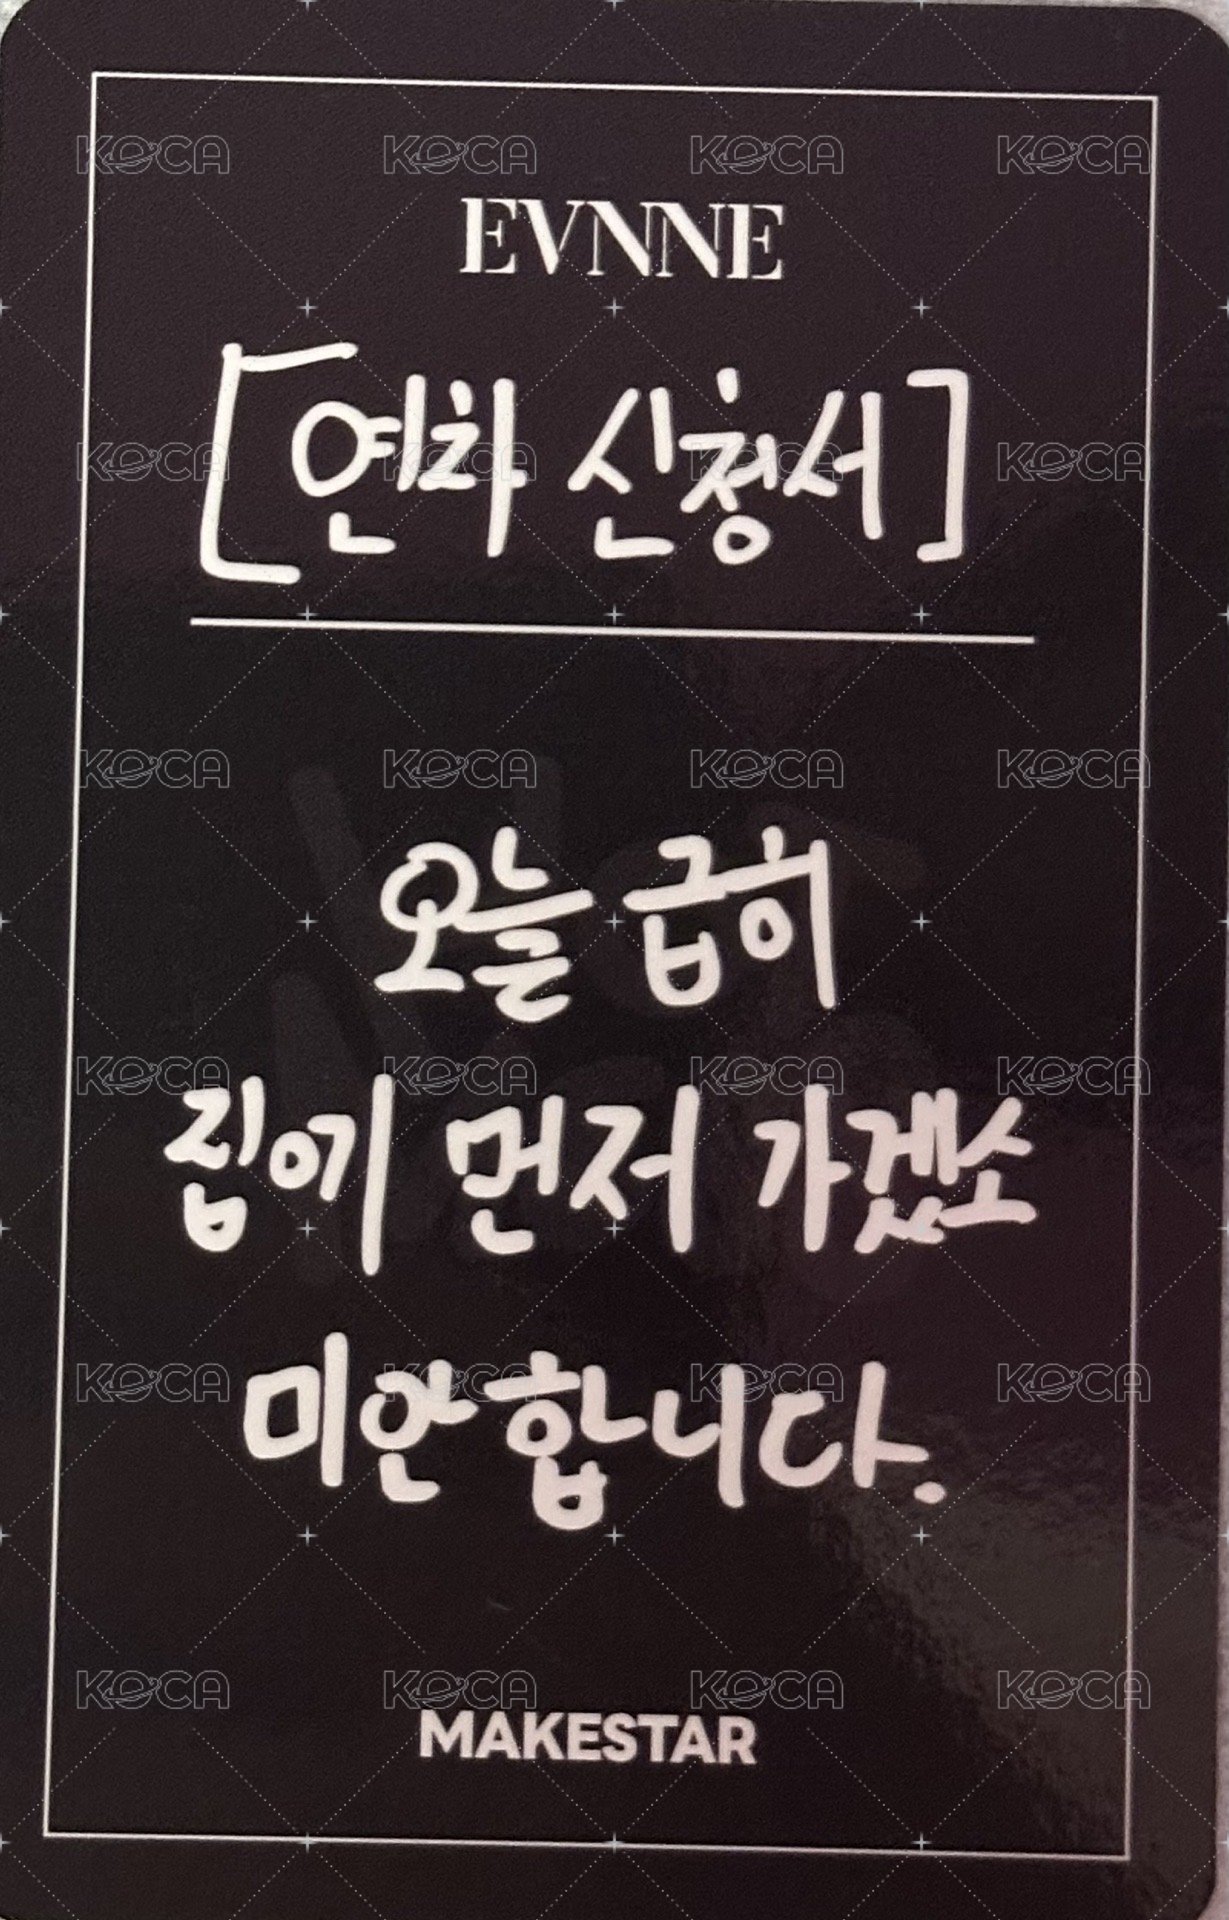 EVNNE
[연차 신청서]
오늘 급히
집에 먼저 가겠소
미안합니다.
MAKESTAR
KOCA KOCA KOCA KOCA
KOCA KOCA KOCA KOCA
KOCA KOCA KOCA KOCA
KOCA KOCA KOCA KOCA
KOCA KOCA KOCA KOCA
KOCA KOCA KOCA KOCA